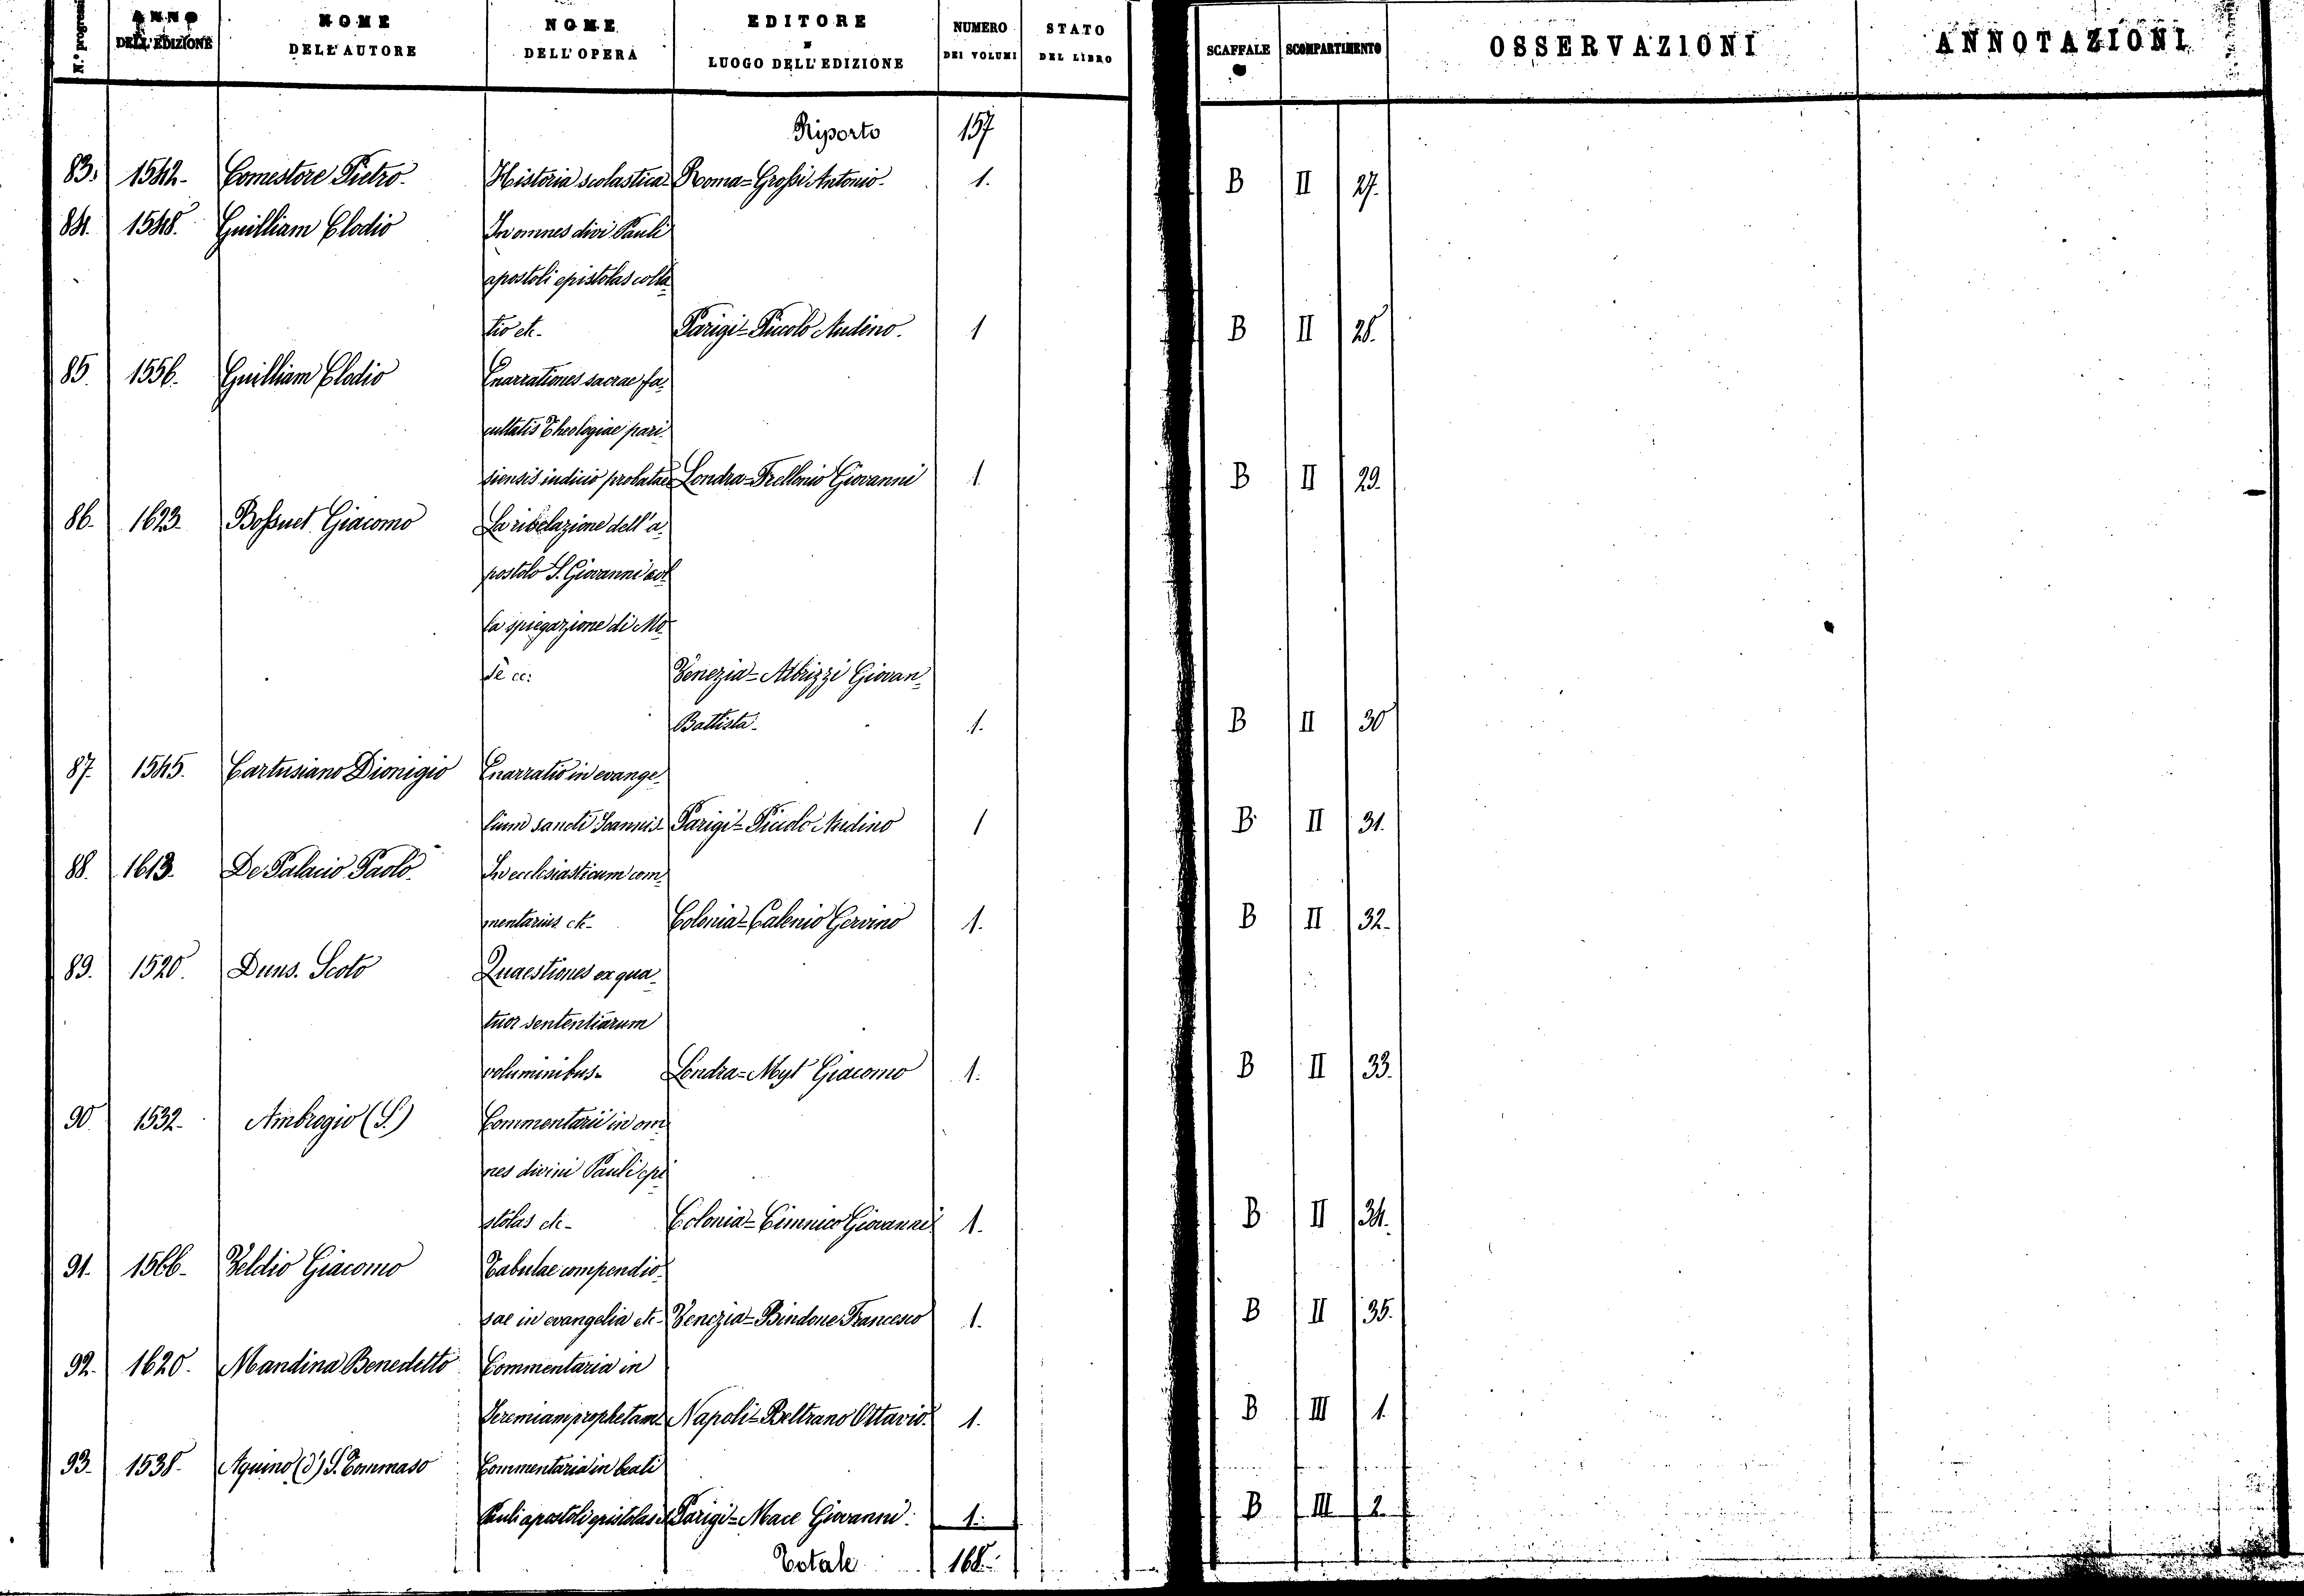 N.° progres. ANNO DELL'EDIZIONE NOME DELL'AUTORE NOME DELL'OPERA EDITORE E LUOGO DELL'EDIZIONE NUMERO DEI VOLUMI STATO DEL LIBRO SCAFFALE SCOMPARTIMENTO OSSERVAZIONI ANNOTAZIONI
Riporto 157
83. 1542. Comestore Pietro. Historia scolastica Roma = Grossi Antonio. 1. B II 27.
84. 1548. Guilliam Clodio In omnes divi Pauli
apostoli epistolas colla-
tio etc. Parigi = Piccolo Audino. 1 B II 28.
85. 1556. Guilliam Clodio Enarrationes sacrae fa-
cultatis Theologiae pari-
siensis indicio probatae Londra = Frellonio Giovanni 1 B II 29.
86. 1623. Bossuet Giacomo La rivelazione dell'a-
postolo S. Giovanni col
la spiegazione di Mo-
sè ec: Venezia = Albrizzi Giovan-
Battista. 1. B II 30
87. 1545. Cartusiano Dionigio Enarratio in evange-
lium sancti Joannis Parigi = Piccolo Audino 1 B II 31.
88. 1613. De Palacio Paolo. In ecclesiasticum com-
mentarius etc. Colonia = Calenio Gervino 1. B II 32.
89. 1520. Duns. Scoto Quaestiones ex qua-
tuor sententiarum
voluminibus. Londra = Myt Giacomo 1. B II 33.
90. 1532. Ambrogio (S.) Commentarii in om-
nes divini Pauli epi-
stolas etc. Colonia = Cimnico Giovanni 1. B II 34.
91. 1566. Veldio Giacomo Tabulae compendio-
sae in evangelia etc. Venezia = Bindone Francesco 1. B II 35.
92. 1620. Mandina Benedetto Commentaria in
Jeremiam prophetam Napoli = Beltrano Ottavio. 1. B III 1.
93. 1538. Aquino (d') S. Tommaso Commentaria in beati
Pauli apostoli epistolas Parigi = Mace Giovanni. 1. B III 2.
Totale 168.